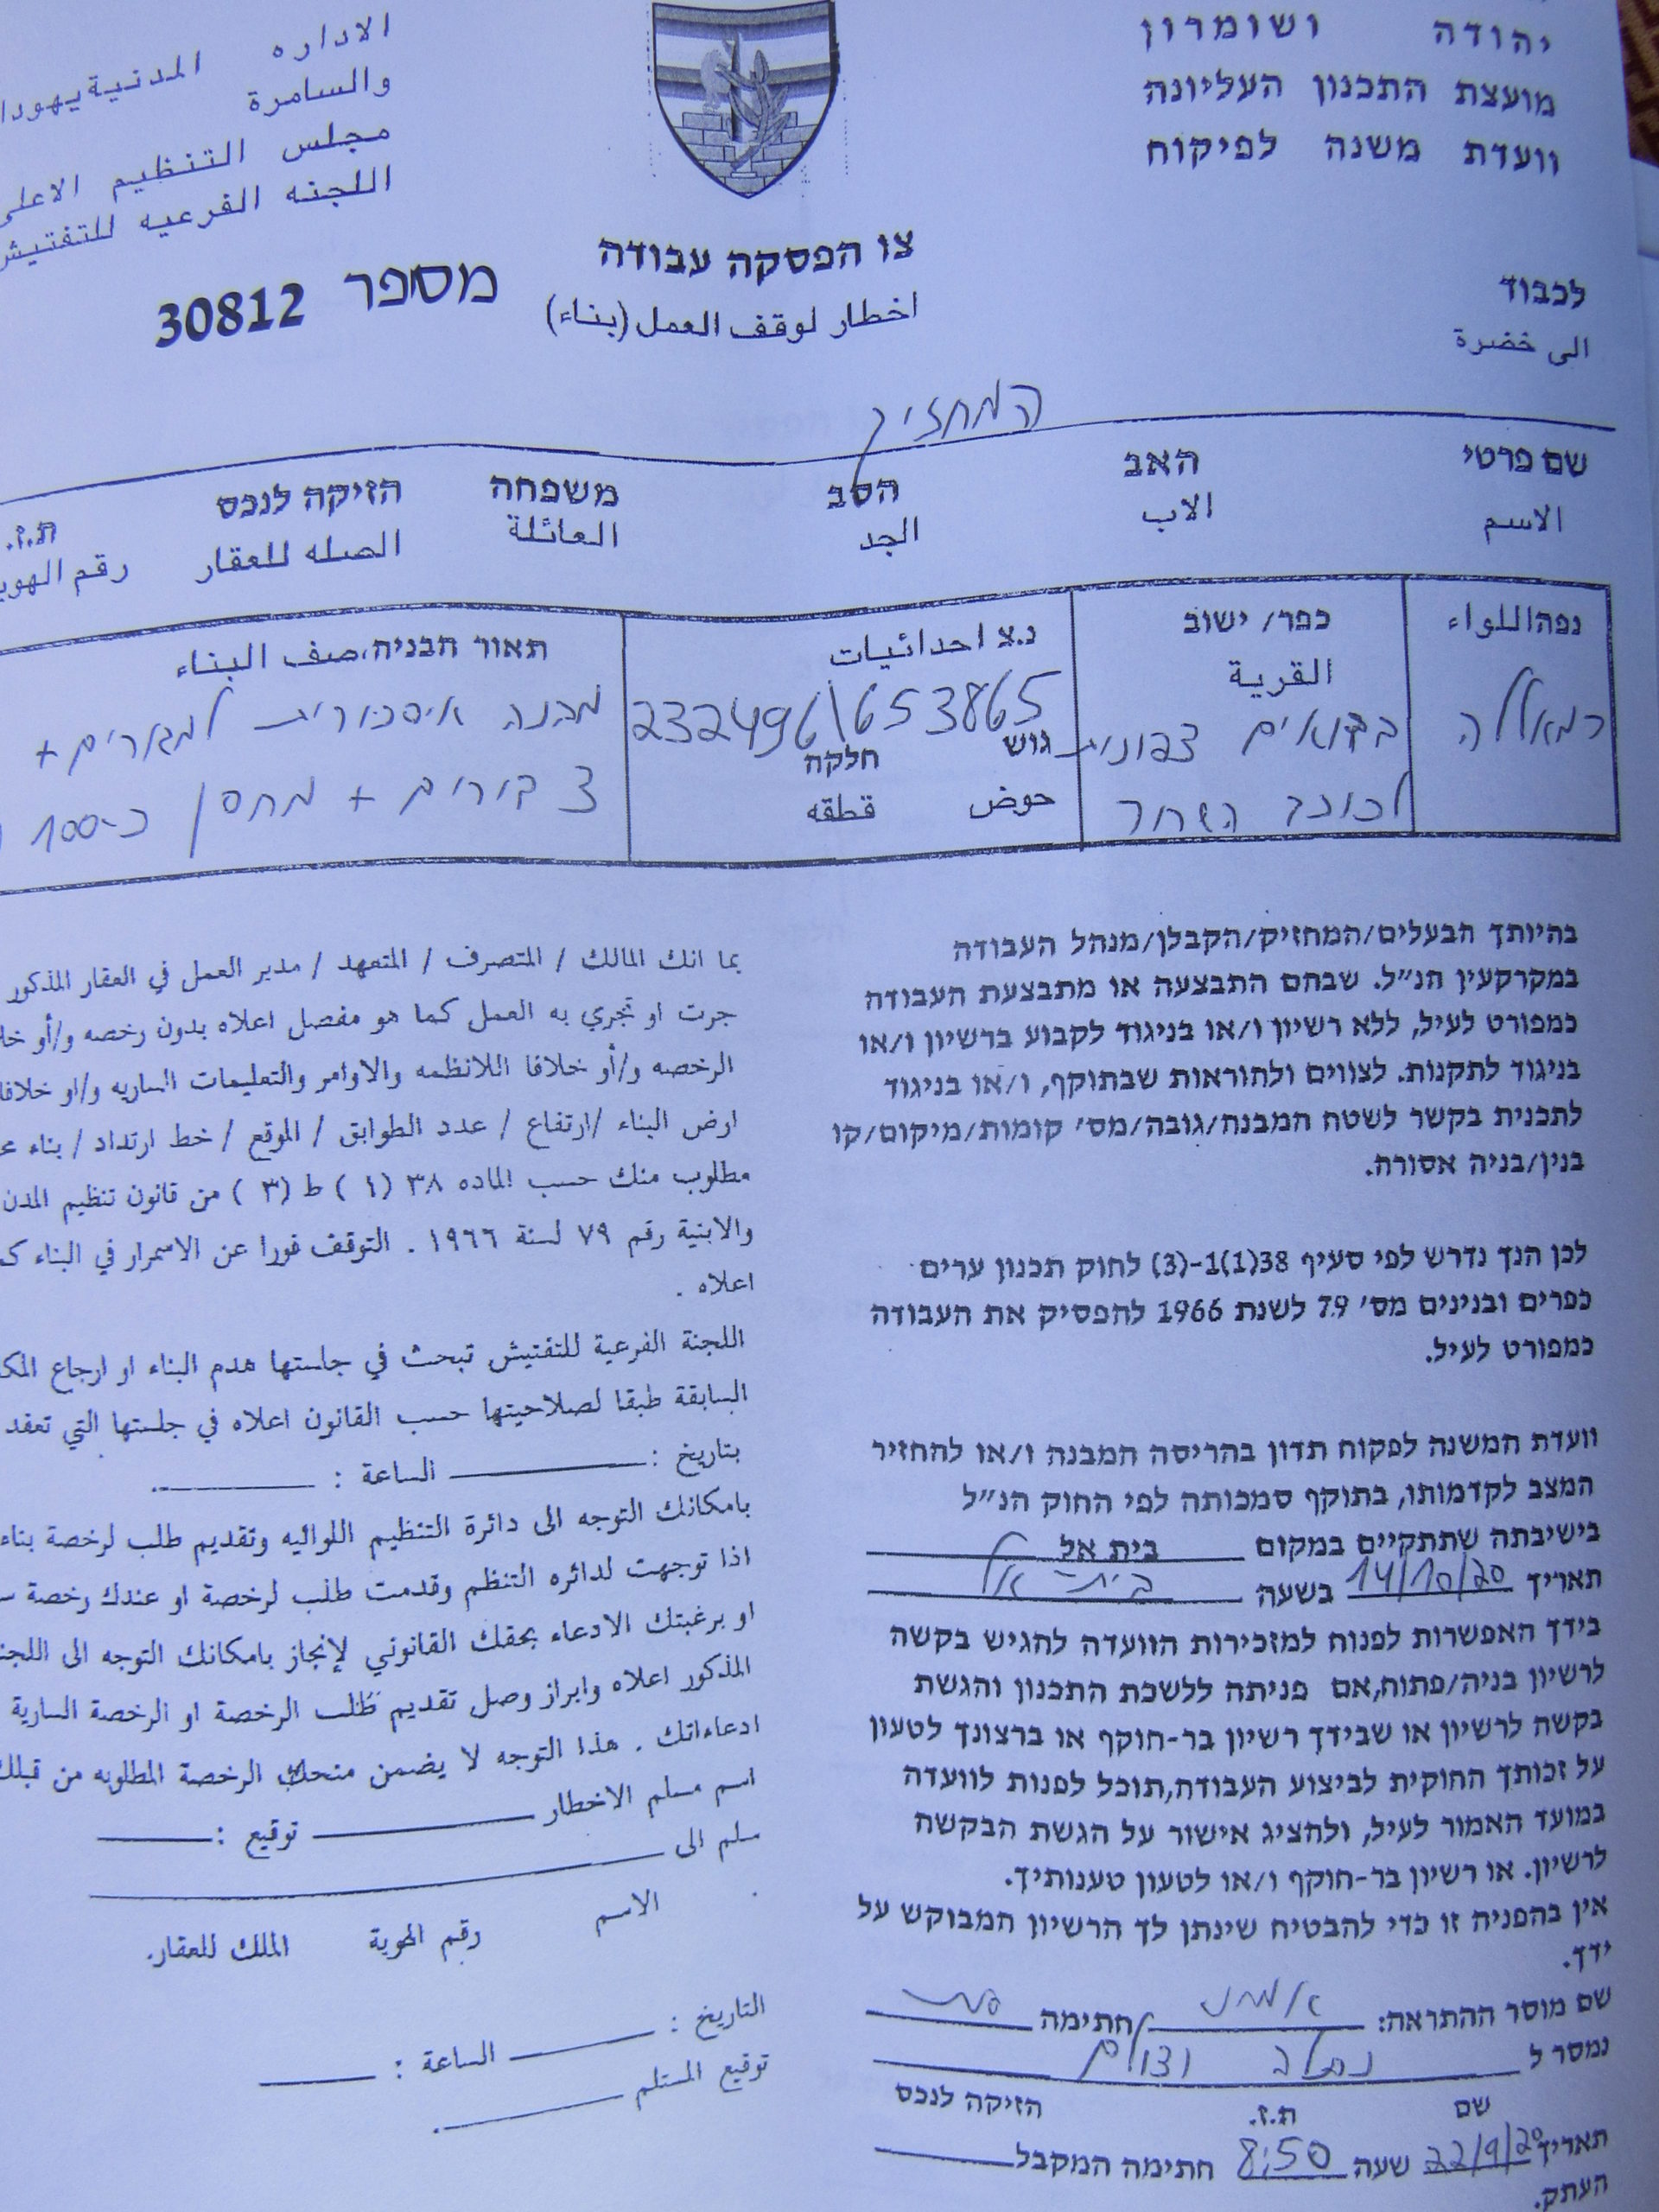 יהודה ושומרון
מועצת התכנון העליונה
וועדת משנה לפיקוח
الاداره المدنية يهودا
والسامرة
مجلس التنظيم الاعلى
اللجنه الفرعيه للتفتيش
צו הפסקה עבודה
اخطار لوقف العمل (بناء)
מספר 30812
לכבוד
الى خضرة
המחזיק
שם פרטי האב הסב משפחה הזיקה לנכס ת.ז.
الاسم الاب الجد العائلة الصله للعقار رقم الهوي
נפה اللواء
רמאללה
כפר/ ישוב
القرية
בדואים צפונית
לכוכב השחר
נ.צ احداثيات
232496\653865
גוש חלקה
حوض قطقه
תאור הבניה، صف البناء
מבנה איסכורית למגורים +
3 בורים + מחסן כ-100
בהיותך הבעלים/המחזיק/הקבלן/מנהל העבודה
במקרקעין הנ״ל. שבהם התבצעה או מתבצעת העבודה
כמפורט לעיל, ללא רשיון ו/או בניגוד לקבוע ברשיון ו/או
בניגוד לתקנות. לצווים ולהוראות שבתוקף, ו/או בניגוד
לתכנית בקשר לשטח המבנה/גובה/מס׳ קומות/מיקום/קו
בנין/בניה אסורה.
לכן הנך נדרש לפי סעיף 38(1)1-(3) לחוק תכנון ערים
כפרים ובנינים מס׳ 79 לשנת 1966 להפסיק את העבודה
כמפורט לעיל.
וועדת המשנה לפקוח תדון בהריסה המבנה ו/או להחזיר
המצב לקדמותו, בתוקף סמכותה לפי החוק הנ״ל
בישיבתה שתתקיים במקום בית אל
תאריך 14/10/20 בשעה בית אל
בידך האפשרות לפנוח למזכירות הוועדה להגיש בקשה
לרשיון בניה/פתוח,אם פניתה ללשכת התכנון והגשת
בקשה לרשיון או שבידך רשיון בר-חוקף או ברצונך לטעון
על זכותך החוקית לביצוע העבודה,תוכל לפנות לוועדה
במועד האמור לעיל, ולהציג אישור על הגשת הבקשה
לרשיון. או רשיון בר-חוקף ו/או לטעון טענותיך.
אין בהפניה זו כדי להבטיח שינתן לך הרשיון המבוקש על
ידך.
שם מוסר ההתראה: חתימה
נמסר ל נתלה וצולם
שם ת.ז. הזיקה לנכס
תאריך 22/9/20 שעה 8:50 חתימה המקבל
העתק.
بما انك المالك / المتصرف / المتعهد / مدير العمل في العقار المذكور
جرت او تجري به العمل كما هو مفصل اعلاه بدون رخصه و/أو خلا
الرخصه و/أو خلافا اللانظمه والاوامر والتعليمات الساريه و/او خلافا
ارض البناء /ارتفاع / عدد الطوابق / الموقع / خط ارتداد / بناء
مطلوب منك حسب الماده ٣٨ (١) ط (٣) من قانون تنظيم المدن
والابنية رقم ٧٩ لسنة ١٩٦٦ . التوقف فورا عن الاسمرار في البناء
اعلاه .
اللجنة الفرعية للتفتيش تبحث في جلستها هدم البناء او ارجاع المكا
السابقة طبقا لصلاحيتها حسب القانون اعلاه في جلستها التي تعقد
بتاريخ : الساعة :
بامكانك التوجه الى دائرة التنظيم اللوائيه وتقديم طلب لرخصة بناء
اذا توجهت لدائره التنظم وقدمت طلب لرخصة او عندك رخصة
او برغبتك الادعاء بحقك القانوني لإنجاز بامكانك التوجه الى اللجنة
المذكور اعلاه وابراز وصل تقديم طلب الرخصة او الرخصة السارية
ادعاءاتك . هذا التوجه لا يضمن منحك الرخصة المطلوبه من قبلك
اسم مسلم الاخطار توقيع :
سلم الى
الاسم رقم الهوية الملك للعقار.
التاريخ : الساعة :
توقيع المستلم